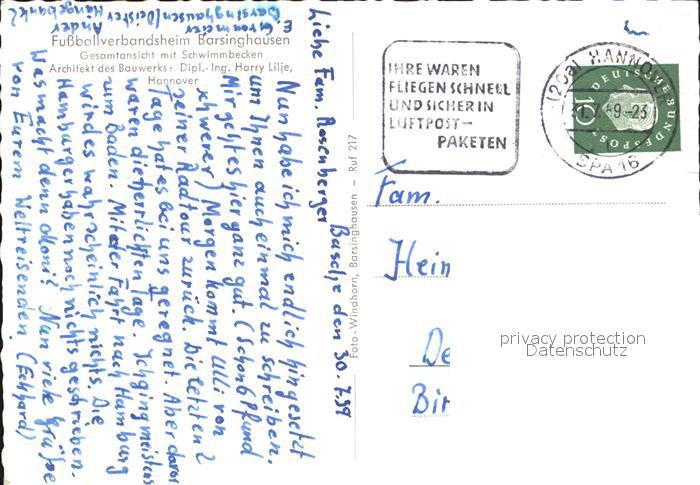 E. Gronmeier
Barsinghausen/Deister
Ander
Fußballverbandsheim Barsinghausen
Gesamtansicht mit Schwimmbecken
Architekt des Bauwerks: Dipl.-Ing. Harry Lilje,
Hannover
Foto-Windhorn, Barsinghausen — Ruf 217
Basche den 30.7.59
Liebe Fam. Rosenberger
Nun habe ich mich endlich hingesetzt
um Ihnen auch einmal zu schreiben.
Mir geht es hier ganz gut. (Schon 6 Pfund
schwerer) Morgen kommt Ulli von
seiner Radtour zurück. Die letzten 2
Tage hat es bei uns geregnet. Aber davor
waren die herrlichsten Tage. Ich ging meistens
zum Baden. Mit der Fahrt nach Hamburg
wird es wahrscheinlich nichts. Die
Hamburger haben noch nichts geschrieben.
Was macht denn Moni? Nun viele Grüße
von Eurem Weltreisenden. (Eckhard)
IHRE WAREN
FLIEGEN SCHNELL
UND SICHER IN
LUFTPOST-
PAKETEN
(20a) HANNO
59.-23
SPA 16
DEUTSCHE BUNDESPOST
10
Fam.
Hein
De
Bir
privacy protection
Datenschutz